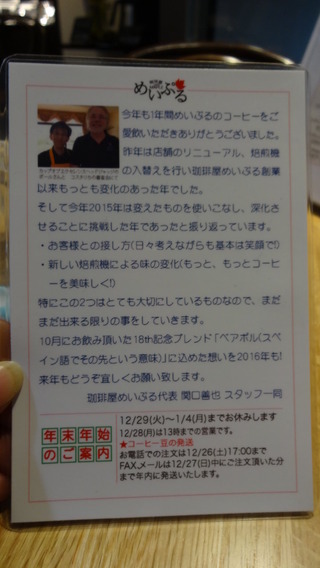 めいぷる
今年も1年間めいぷるのコーヒーをご
愛飲いただきありがとうございました。
昨年は店舗のリニューアル、焙煎機
の入替えを行い珈琲屋めいぷる創業
以来もっとも変化のあった年でした。
そして今年2015年は変えたものを使いこなし、深化さ
せることに挑戦した年であったと振り返っています。
・お客様との接し方(日々考えながらも基本は笑顔で!)
・新しい焙煎機による味の変化(もっと、もっとコーヒ
ーを美味しく!)
特にこの2つはとても大切にしているものなので、まだ
まだ出来る限りの事をしていきます。
10月にお飲み頂いた18th記念ブレンド「ペアポル(スペ
イン語でその先という意味)」に込めた想いを2016年も!
来年もどうぞ宜しくお願い致します。
珈琲屋めいぷる代表 関口善也 スタッフ一同
年末年始
のご案内
12/29(火)~1/4(月)までお休みします
12/28(月)は13時までの営業です。
★コーヒー豆の発送
お電話での注文は12/26(土)17:00まで
FAX,メールは12/27(日)中にご注文頂いた分
まで年内に発送いたします。